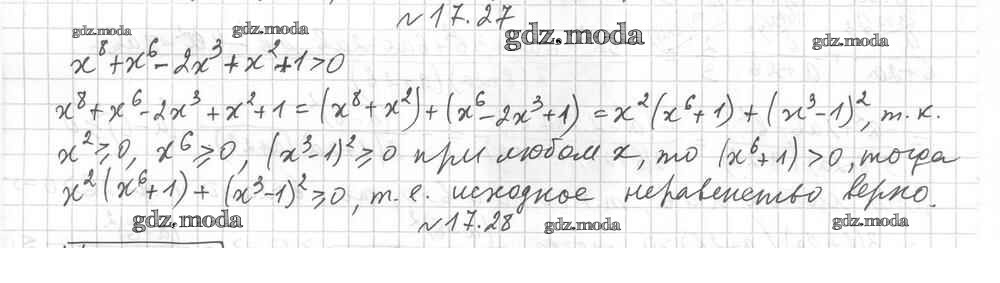 №17.27
gdz.moda gdz.moda gdz.moda gdz.moda
x⁸+x⁶-2x³+x²+1>0
x⁸+x⁶-2x³+x²+1=(x⁸+x²)+(x⁶-2x³+1)=x²(x⁶+1)+(x³-1)², т.к.
x²≥0, x⁶≥0, (x³-1)²≥0 при любом x, то (x⁶+1)>0, тогда
x²(x⁶+1)+(x³-1)²≥0, т.е. исходное неравенство верно.
gdz.moda №17.28 gdz.moda gdz.moda